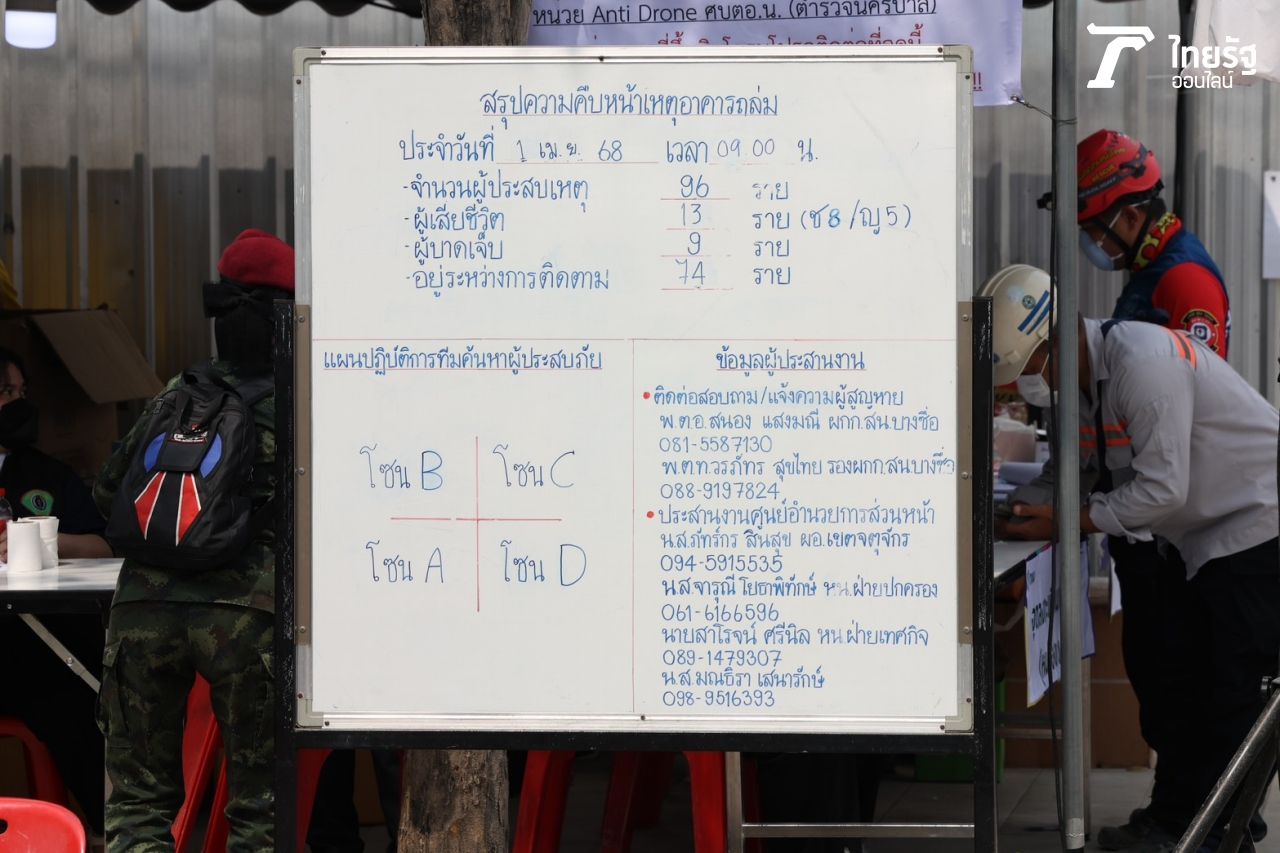 หน่วย Anti Drone ศบตอ.น. (ตำรวจนครบาล)
ไทยรัฐ
ออนไลน์
สรุปความคืบหน้าเหตุอาคารถล่ม
ประจำวันที่ 1 เม.ย. 68 เวลา 09.00 น.
-จำนวนผู้ประสบเหตุ 96 ราย
-ผู้เสียชีวิต 13 ราย (ช8/ญ5)
-ผู้บาดเจ็บ 9 ราย
-อยู่ระหว่างการติดตาม 74 ราย
แผนปฏิบัติการทีมค้นหาผู้ประสบภัย
โซน B
โซน C
โซน A
โซน D
ข้อมูลผู้ประสานงาน
• ติดต่อสอบถาม/แจ้งความผู้สูญหาย
พ.ต.อ.สนอง แสงมณี ผกก.สน.บางซื่อ
081-5587130
พ.ต.ท.วรภัทร สุขไทย รองผกก.สน.บางซื่อ
088-9197824
• ประสานงานศูนย์อำนวยการส่วนหน้า
น.ส.ภัทร์กร สินสุข ผอ.เขตจตุจักร
094-5915535
น.ส.จารุณี โยธาพิทักษ์ หน.ฝ่ายปกครอง
061-6166596
นายสาโรจน์ ศรีนิล หน.ฝ่ายเทศกิจ
089-1479307
น.ส.มณธิรา เสนารักษ์
098-9516393